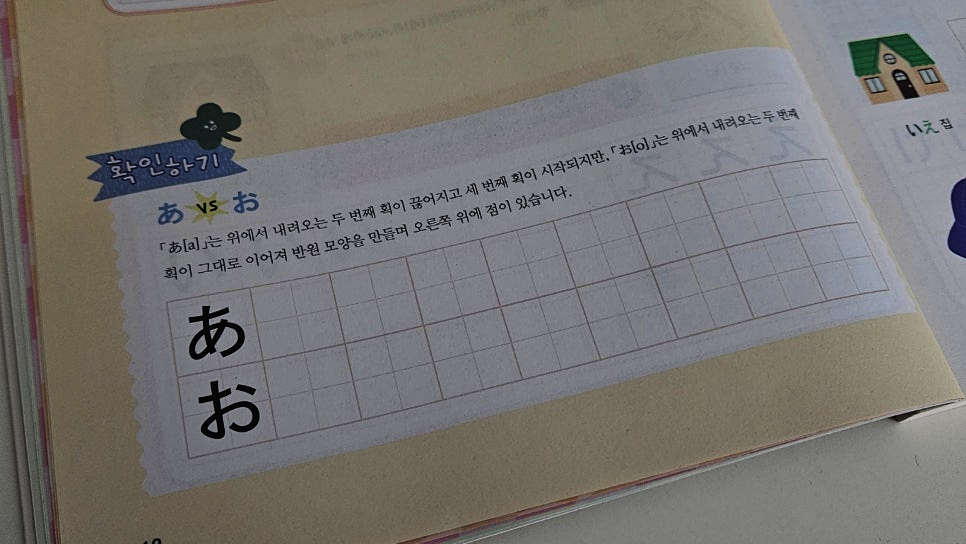 확인하기
あ vs お
「あ[a]」는 위에서 내려오는 두 번째 획이 끊어지고 세 번째 획이 시작되지만, 「お[o]」는 위에서 내려오는 두 번째
획이 그대로 이어져 반원 모양을 만들며 오른쪽 위에 점이 있습니다.
あ
お
いえ 집